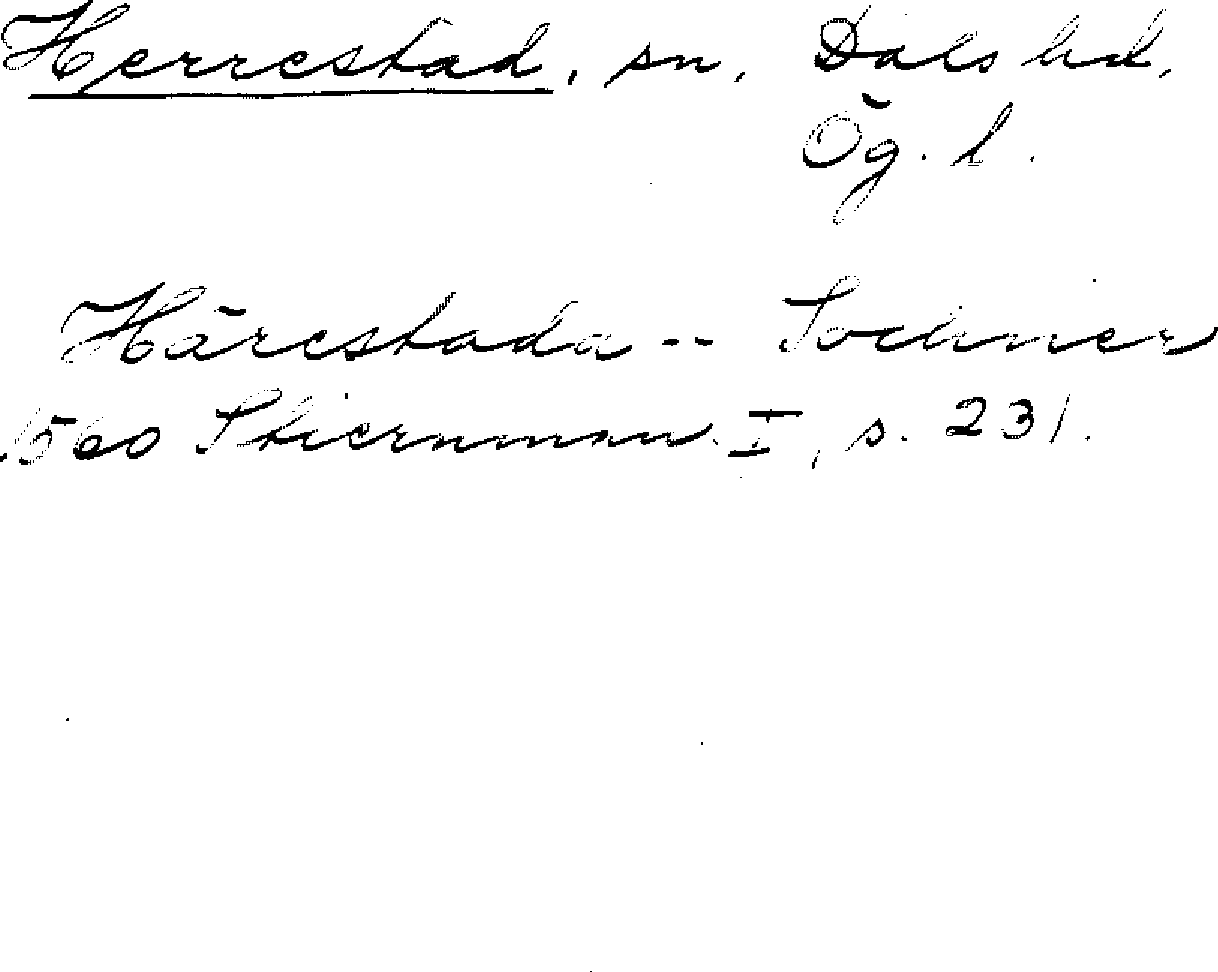 Herrestad, sn, Dals hd,
Ög. l.
Härestada -- Sochner
1560 Stiernman I, s. 231.